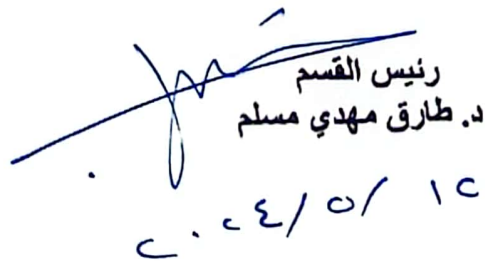 رئيس القسم
د. طارق مهدي مسلم
٢٠٢٤/٥/١٢